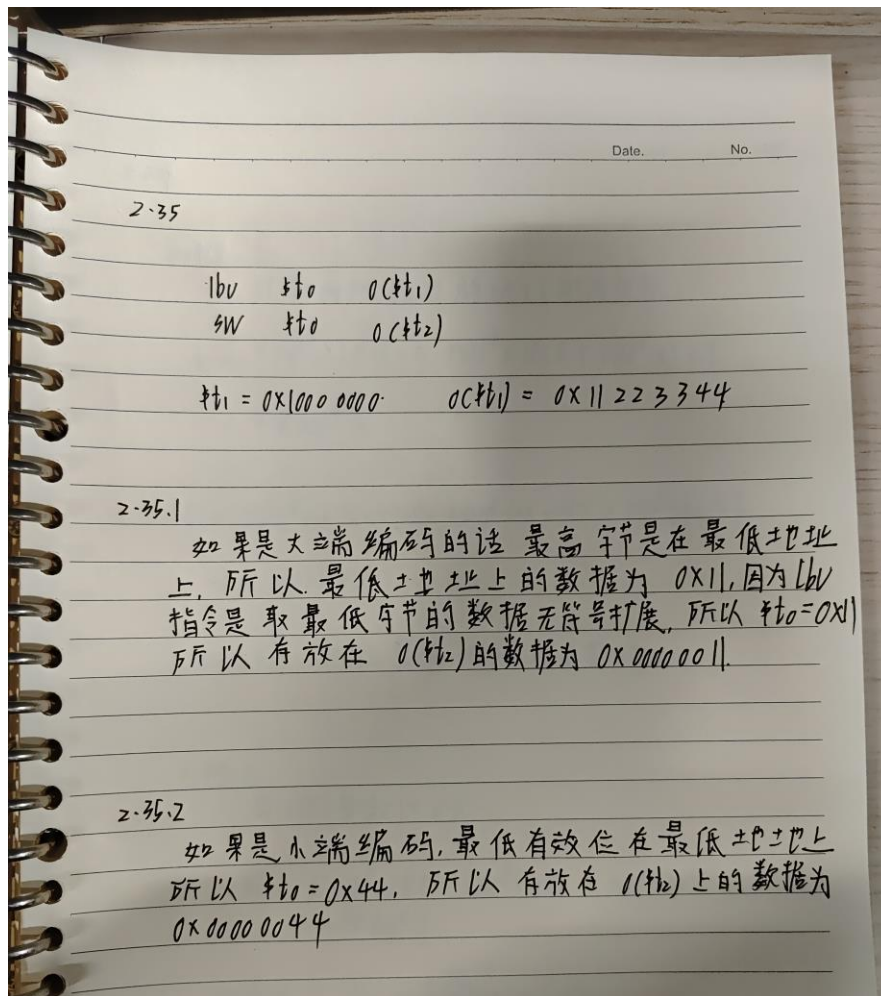 Date. No.
2.35
lbu $t0 0($t1)
sw $t0 0($t2)
$t1 = 0x1000 0000. 0($t1) = 0x11223344
2.35.1
如果是大端编码的话 最高字节是在最低地址
上, 所以.最低地址上的数据为 0x11,因为lbu
指令是取最低字节的数据无符号扩展, 所以 $t0=0x11
所以存放在 0($t2)的数据为 0x00000011.
2.35.2
如果是小端编码, 最低有效位在最低地地上
所以 $t0=0x44, 所以 存放在 0($t2) 上的数据为
0x00000044